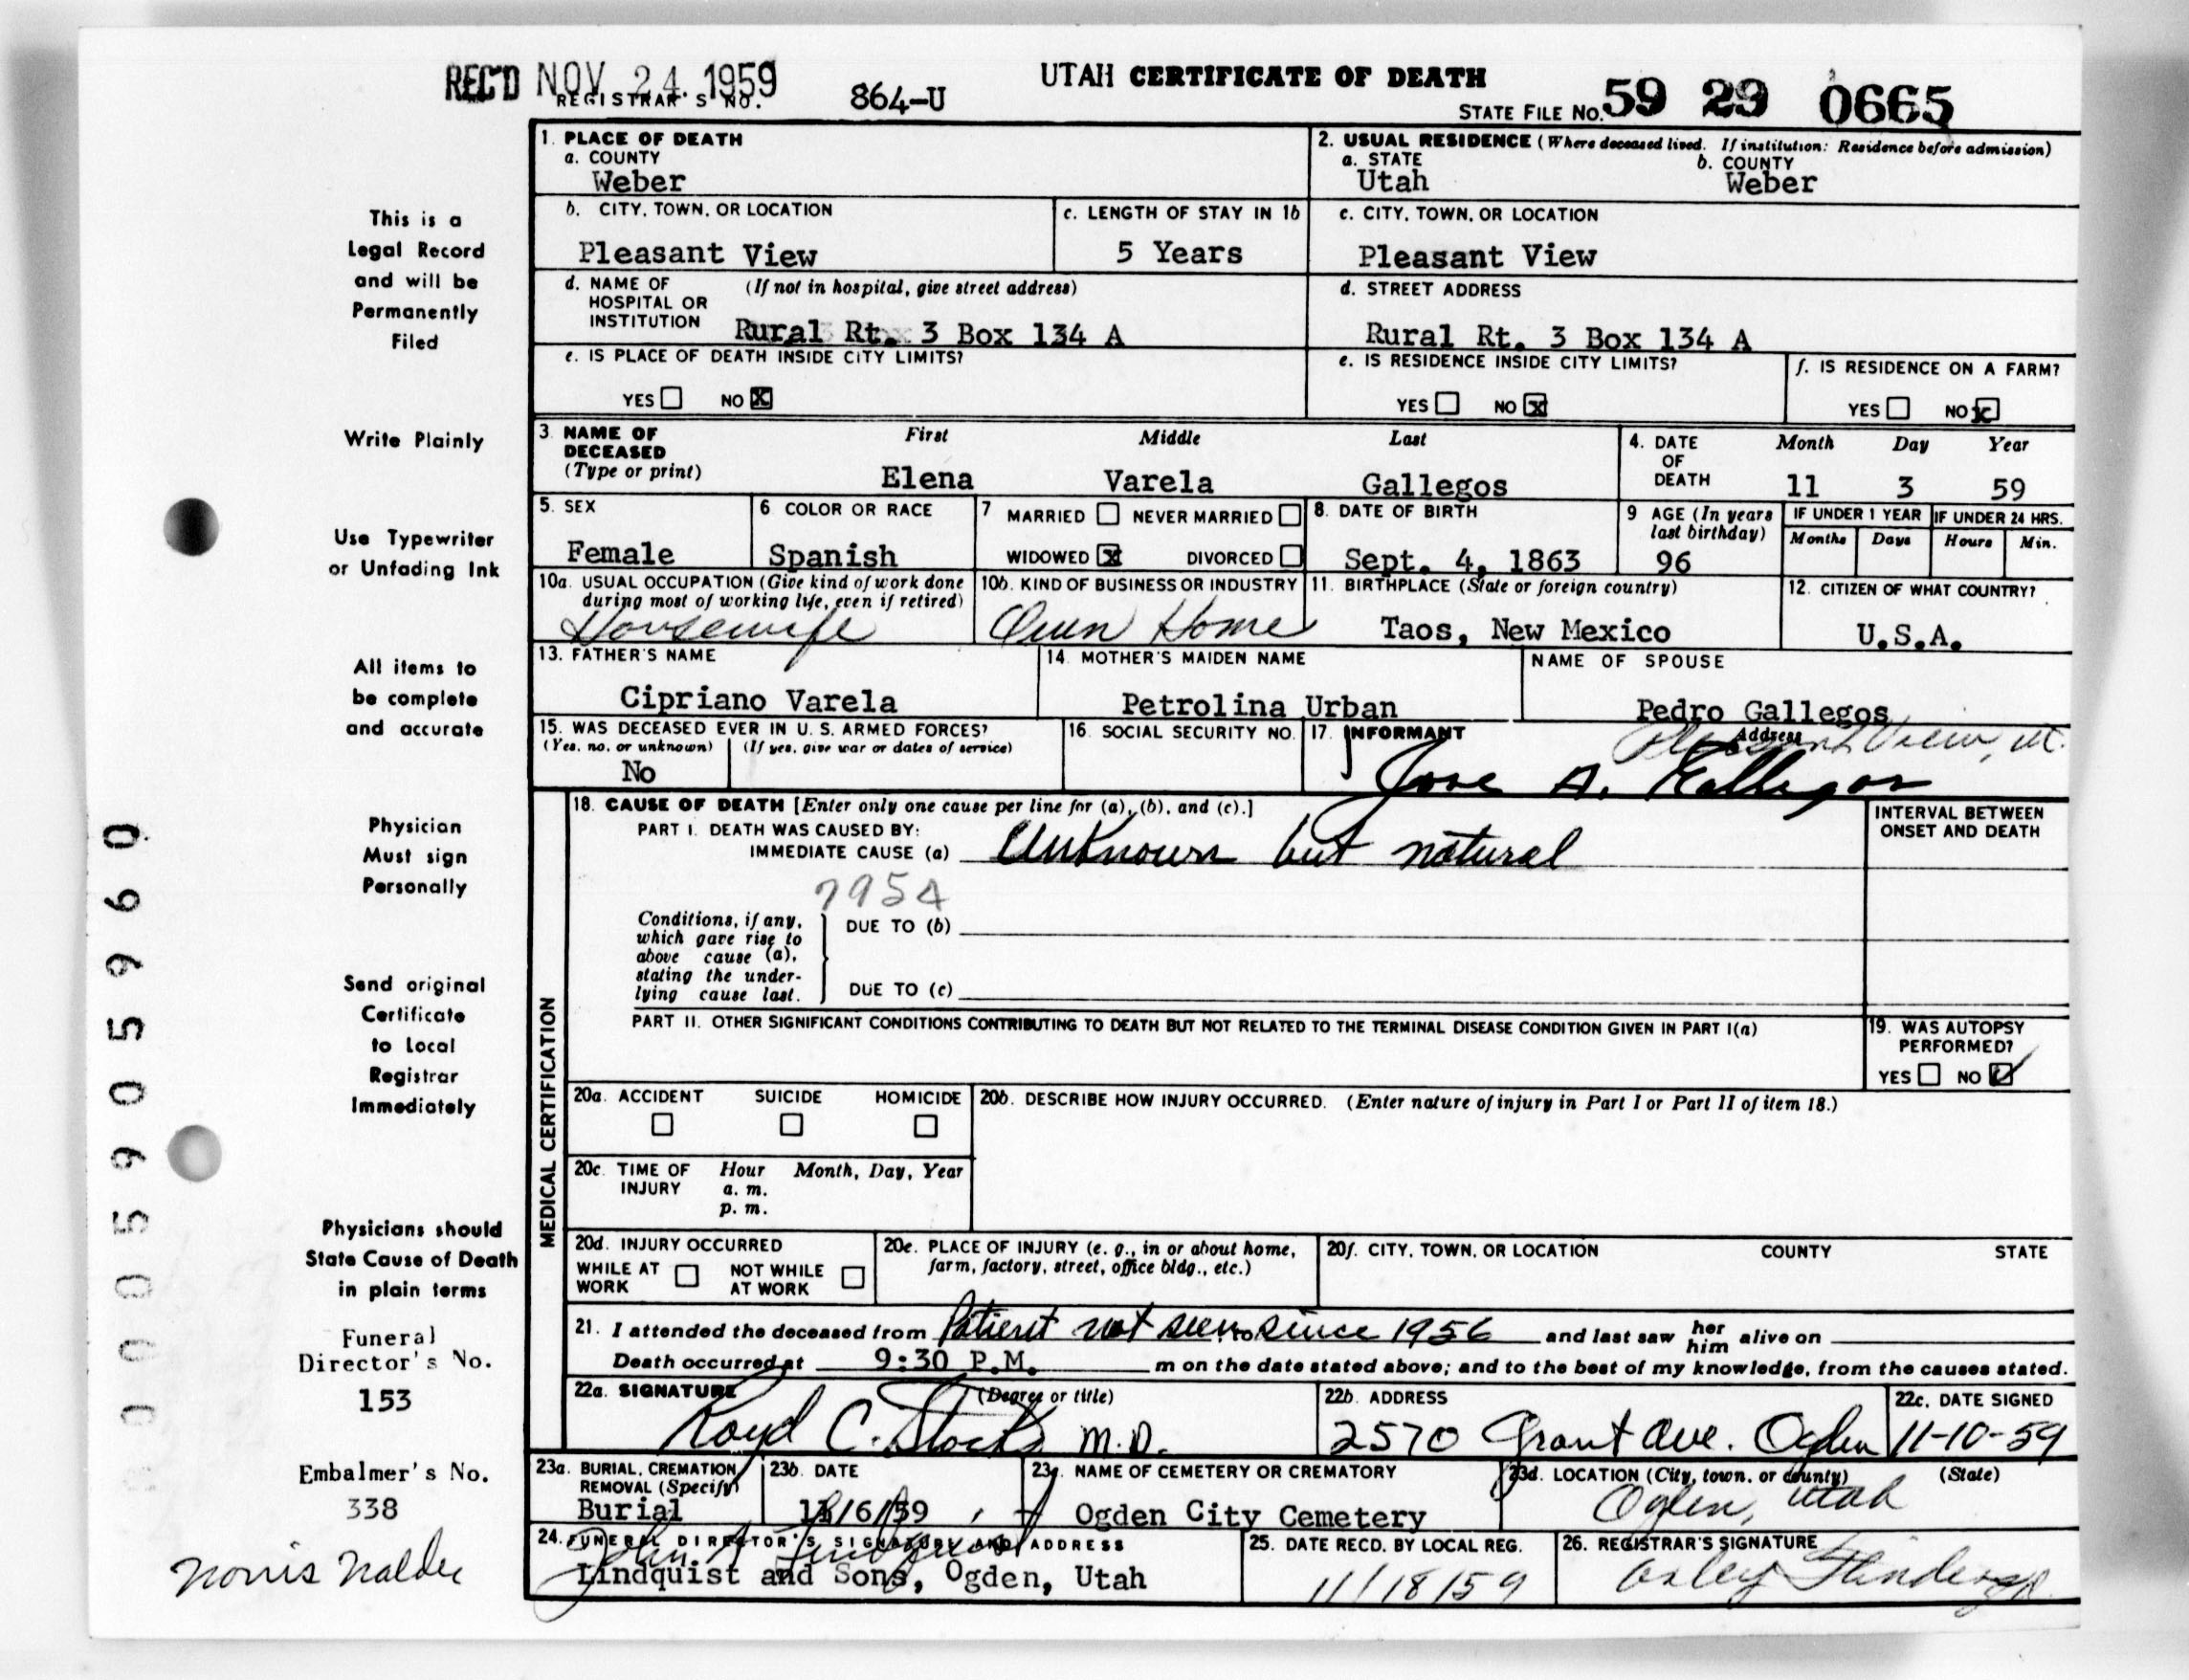 REC'D NOV. 24. 1959
REGISTRAR'S NO. 864-U
UTAH CERTIFICATE OF DEATH
STATE FILE NO. 59 29 0665
1. PLACE OF DEATH
a. COUNTY
Weber
2. USUAL RESIDENCE (Where deceased lived. If institution: Residence before admission)
a. STATE b. COUNTY
Utah Weber
b. CITY, TOWN, OR LOCATION
Pleasant View
c. LENGTH OF STAY IN 1b
5 Years
c. CITY, TOWN, OR LOCATION
Pleasant View
d. NAME OF HOSPITAL OR INSTITUTION (If not in hospital, give street address)
Rural Rt. 3 Box 134 A
d. STREET ADDRESS
Rural Rt. 3 Box 134 A
e. IS PLACE OF DEATH INSIDE CITY LIMITS?
YES NO X
e. IS RESIDENCE INSIDE CITY LIMITS?
YES NO X
f. IS RESIDENCE ON A FARM?
YES NO X
3. NAME OF DECEASED (Type or print)
First Middle Last
Elena Varela Gallegos
4. DATE OF DEATH
Month Day Year
11 3 59
5. SEX
Female
6 COLOR OR RACE
Spanish
7 MARRIED NEVER MARRIED
WIDOWED X DIVORCED
8. DATE OF BIRTH
Sept. 4, 1863
9 AGE (In years last birthday)
96
IF UNDER 1 YEAR
Months Days
IF UNDER 24 HRS.
Hours Min.
10a. USUAL OCCUPATION (Give kind of work done during most of working life, even if retired)
Housewife
10b. KIND OF BUSINESS OR INDUSTRY
Own Home
11. BIRTHPLACE (State or foreign country)
Taos, New Mexico
12. CITIZEN OF WHAT COUNTRY?
U.S.A.
13. FATHER'S NAME
Cipriano Varela
14. MOTHER'S MAIDEN NAME
Petrolina Urban
NAME OF SPOUSE
Pedro Gallegos
15. WAS DECEASED EVER IN U. S. ARMED FORCES?
(Yes, no, or unknown) (If yes, give war or dates of service)
No
16. SOCIAL SECURITY NO.
17. INFORMANT Address
Pleasant View, Ut.
Jose A. Gallegos
MEDICAL CERTIFICATION
18. CAUSE OF DEATH [Enter only one cause per line for (a), (b), and (c).]
PART I. DEATH WAS CAUSED BY:
IMMEDIATE CAUSE (a) Unknown but natural
7954
Conditions, if any, which gave rise to above cause (a), stating the underlying cause last.
DUE TO (b)
DUE TO (c)
INTERVAL BETWEEN ONSET AND DEATH
PART II. OTHER SIGNIFICANT CONDITIONS CONTRIBUTING TO DEATH BUT NOT RELATED TO THE TERMINAL DISEASE CONDITION GIVEN IN PART I(a)
19. WAS AUTOPSY PERFORMED?
YES NO ✓
20a. ACCIDENT SUICIDE HOMICIDE
20b. DESCRIBE HOW INJURY OCCURRED. (Enter nature of injury in Part I or Part II of item 18.)
20c. TIME OF INJURY
Hour Month, Day, Year
a. m.
p. m.
20d. INJURY OCCURRED
WHILE AT WORK NOT WHILE AT WORK
20e. PLACE OF INJURY (e. g., in or about home, farm, factory, street, office bldg., etc.)
20f. CITY, TOWN, OR LOCATION COUNTY STATE
21. I attended the deceased from Patient not seen to since 1956 and last saw her him alive on
Death occurred at 9:30 P.M. m on the date stated above; and to the best of my knowledge, from the causes stated.
22a. SIGNATURE (Degree or title)
Royd C. Stocks M.D.
22b. ADDRESS
2570 Grant Ave. Ogden
22c. DATE SIGNED
11-10-59
23a. BURIAL, CREMATION, REMOVAL (Specify)
Burial
23b. DATE
11/6/59
23c. NAME OF CEMETERY OR CREMATORY
Ogden City Cemetery
23d. LOCATION (City, town, or county) (State)
Ogden, Utah
24. FUNERAL DIRECTOR'S SIGNATURE AND ADDRESS
Lindquist and Sons, Ogden, Utah
25. DATE RECD. BY LOCAL REG.
11/18/59
26. REGISTRAR'S SIGNATURE
This is a
Legal Record
and will be
Permanently
Filed
Write Plainly
Use Typewriter
or Unfading Ink
All items to
be complete
and accurate
Physician
Must sign
Personally
Send original
Certificate
to Local
Registrar
Immediately
Physicians should
State Cause of Death
in plain terms
Funeral
Director's No.
153
Embalmer's No.
338
Norris Nalder
005905960